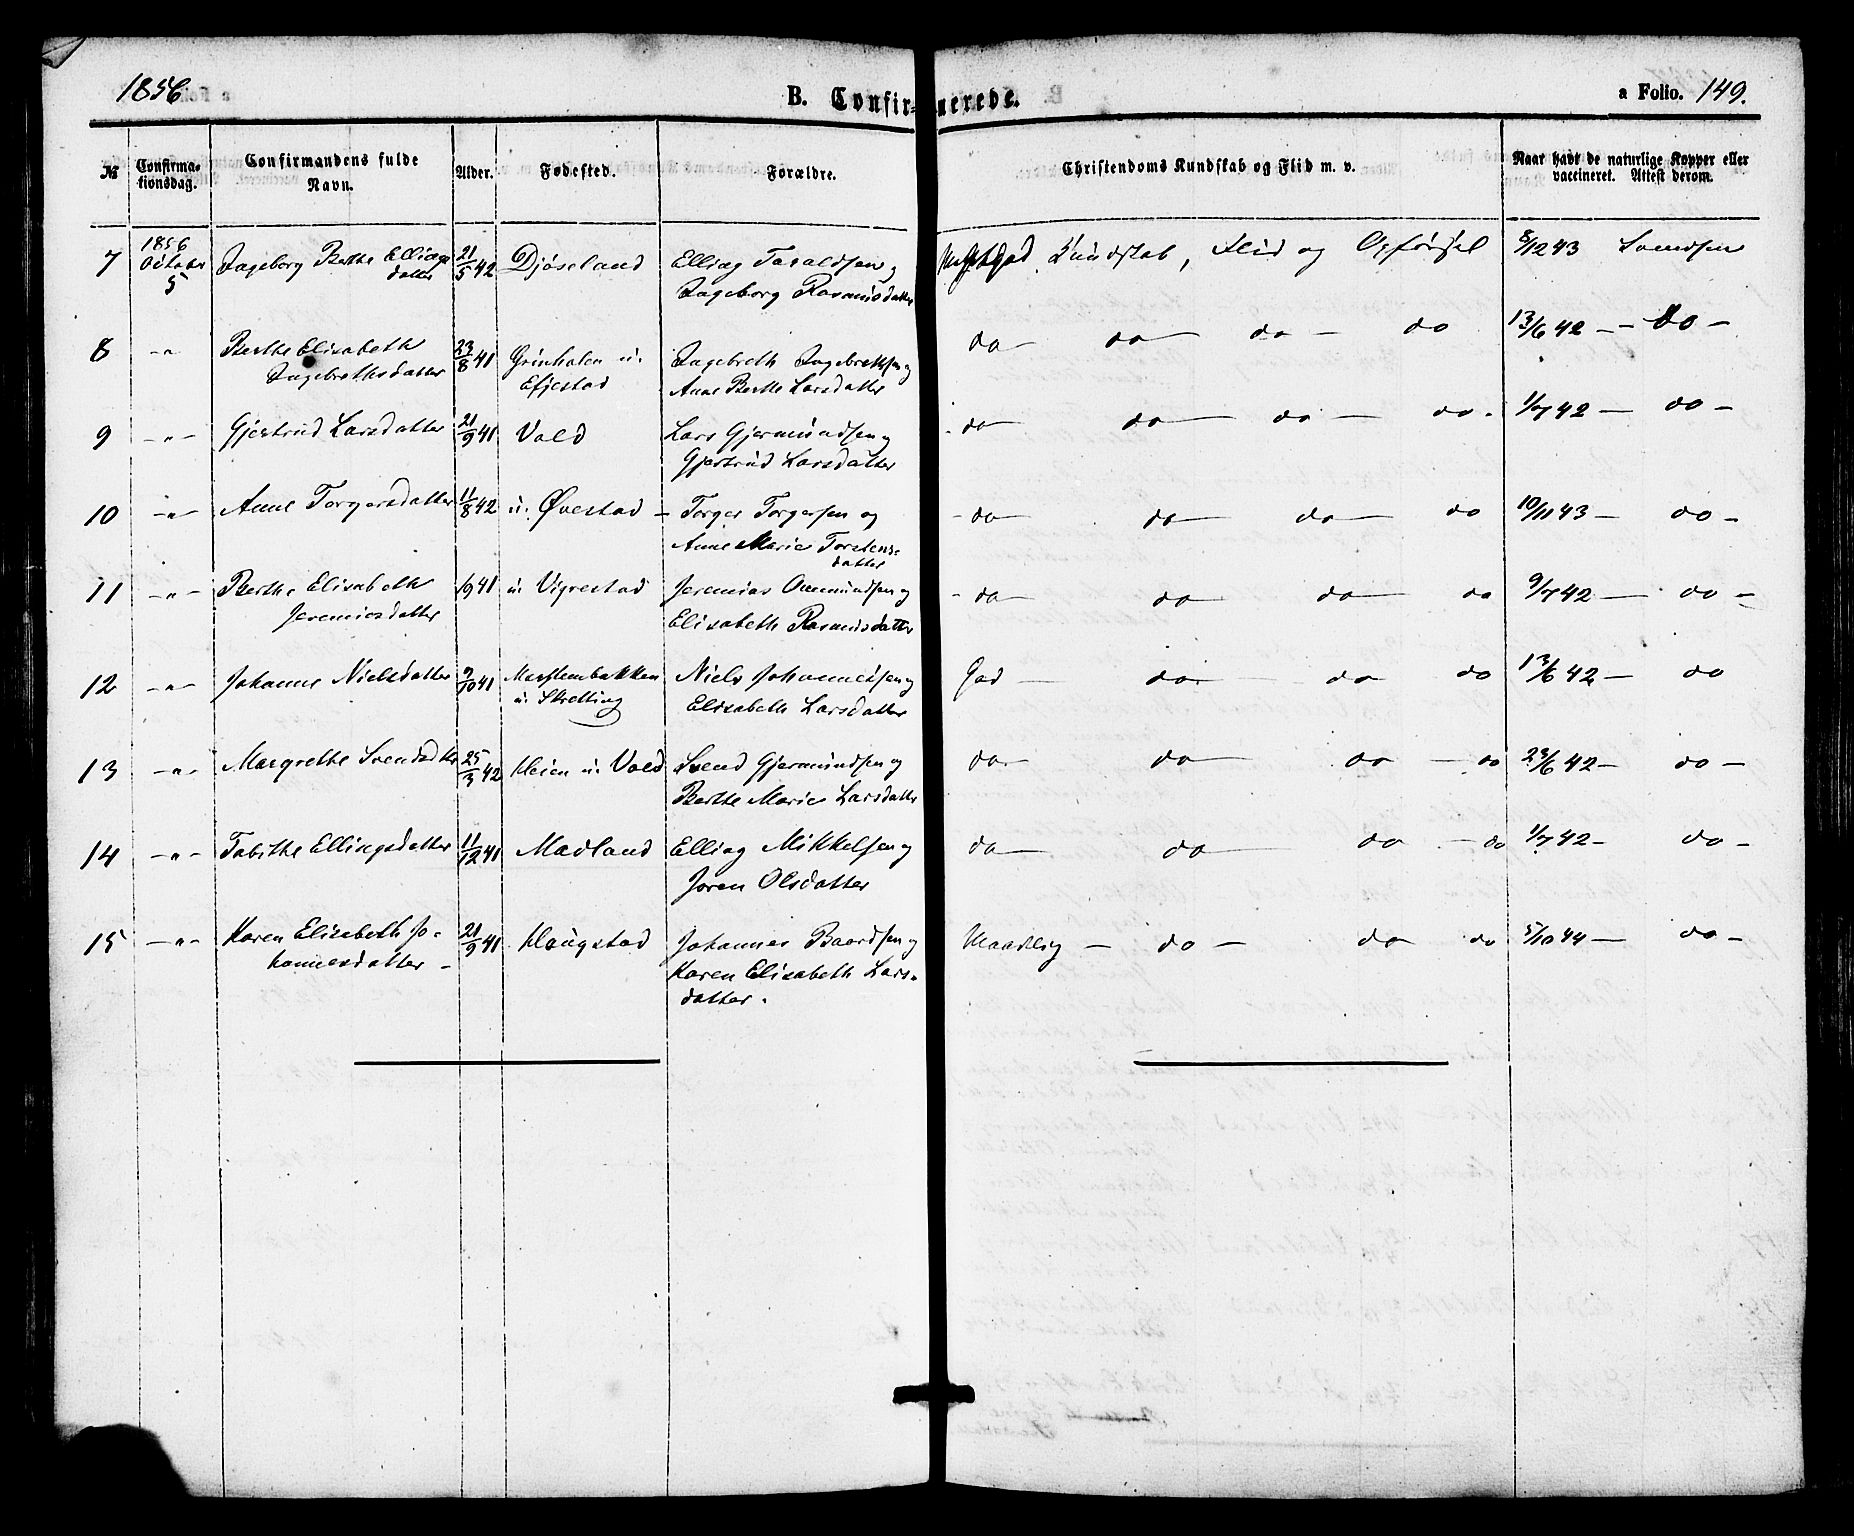 1856 B. Confirmerede. a Folio. 149.
№ Confirmationsdag. Confirmandens fulde Navn. Alder. Fødested. Forældre. Christendoms Kundskab og Flid m. v. Naar havt de naturlige Kopper eller vaccineret. Attest derom.
7 1856 October 5 Ingeborg Berthe Ellingsdatter 21/5 42 Djøseland Elling Taraldsen og Kundskab, Flid og Opførsel 8/12 43 Svendsen
Ingeborg Rasmusdatter
8 -"- Berthe Elisabeth 23/8 41 Grinhalen u. Ingebreth Ingebrethsen og do — do — do — do 13/6 42 — do —
Ingebrethsdatter Efjestad Anne Berthe Larsdatter
9 -"- Gjertrud Larsdatter 21/9 41 Vold Lars Gjermundsen og do — do — do — do. 1/7 42 — do —
Gjertrud Larsdatter
10 -"- Anne Torgersdatter 11/8 42 u. Øvestad — Torger Torgersen og do — do — do — do 10/11 43 — do —
Anne Marie Torstens-
datter
11 -"- Berthe Elisabeth 1/9 41 u. Vigrestad Jeremias Ommundsen og do — do — do — do 9/7 42 — do —
Jeremiesdatter Elisabeth Rasmusdatter
12 -"- Johanne Nielsdatter 9/10 41 Niels Johannessen og God — do — do do 13/6 42 — do
u. Skretting Elisabeth Larsdatter
13 -"- Margrethe Svendsdtr 25/3 42 Heien u. Vold Svend Gjermundsen og do — do — do — do 23/6 42 — do —
Berthe Marie Larsdatter
14 -"- Tabithe Ellingsdatter 11/12 41 Madland Elling Mikkelsen og do — do — do — do 1/7 42 — do —
Joren Olsdatter
15 -"- Karen Elisabeth Jo- 21/9 41 Haugstad Johannes Baardsen og Maadelig — do — do do 5/10 44 — do —
hannesdatter Karen Elisabeth Lars-
datter.